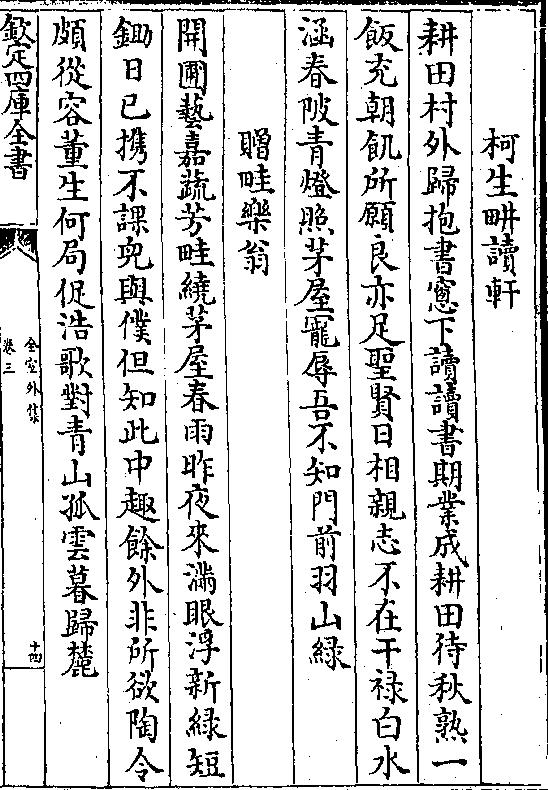 柯生畊讀軒
耕田村外歸抱書窻下讀讀書期業成耕田待秋熟一
飯充朝飢所願良亦足聖賢日相親志不在干禄白水
涵春陂青燈照茅屋寵辱吾不知門前羽山緑
贈畦樂翁
開圃藝嘉蔬芳畦繞茅屋春雨昨夜來滿眼浮新緑短
鋤日已携不課兒與僕但知此中趣餘外非所欲陶令
頗從容董生何局促浩歌對青山孤雲暮歸麓
欽定四庫全書
全室外集
卷三
十四